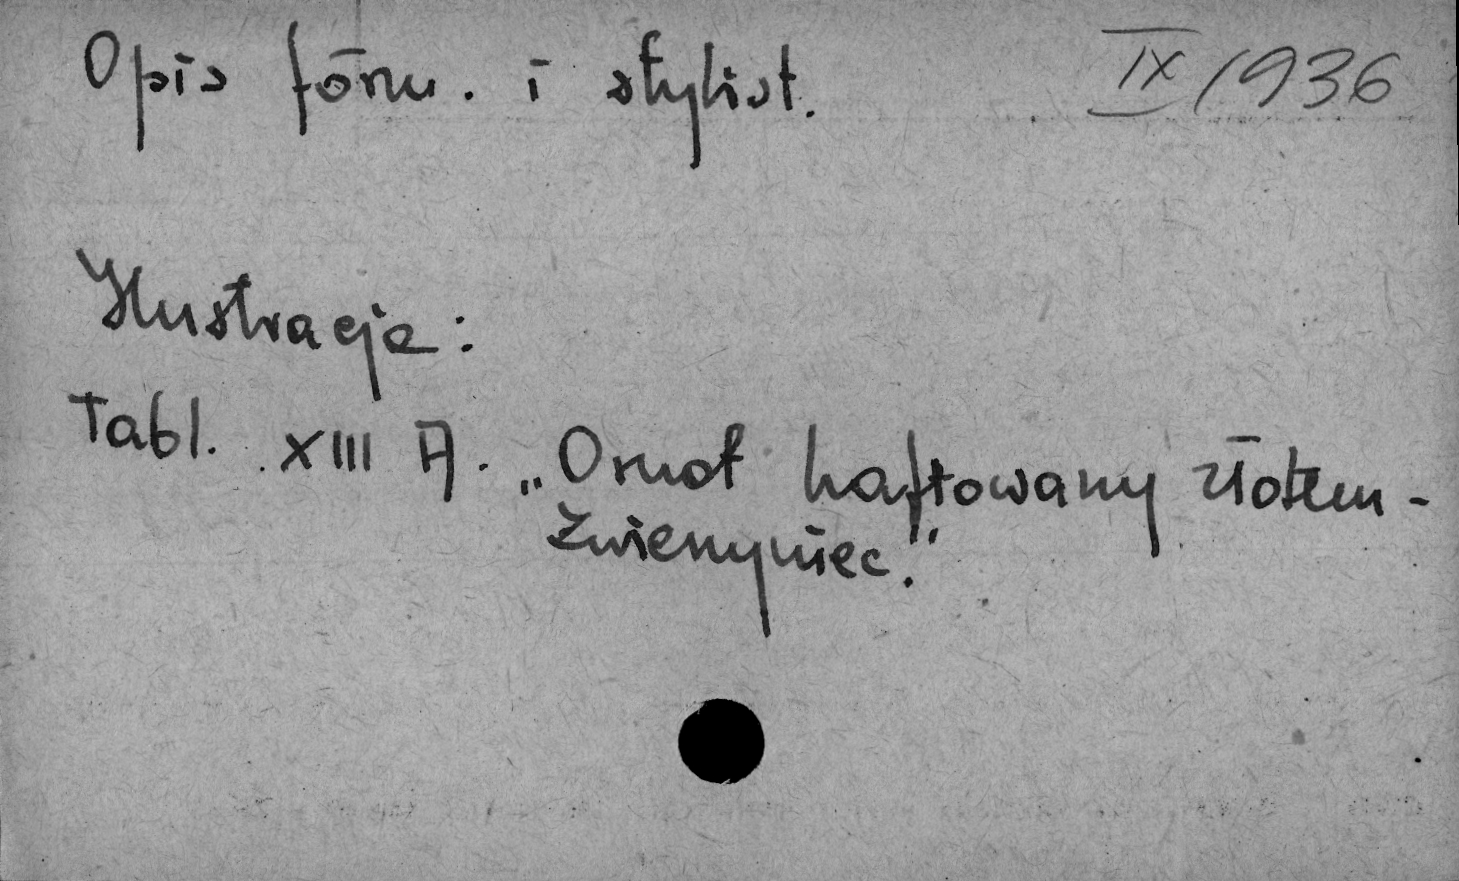 Opis form. i stylist. IX/1936
Ilustracje:
Tabl. XIII A. „Ornat haftowany złotem -
Zwierzyniec."